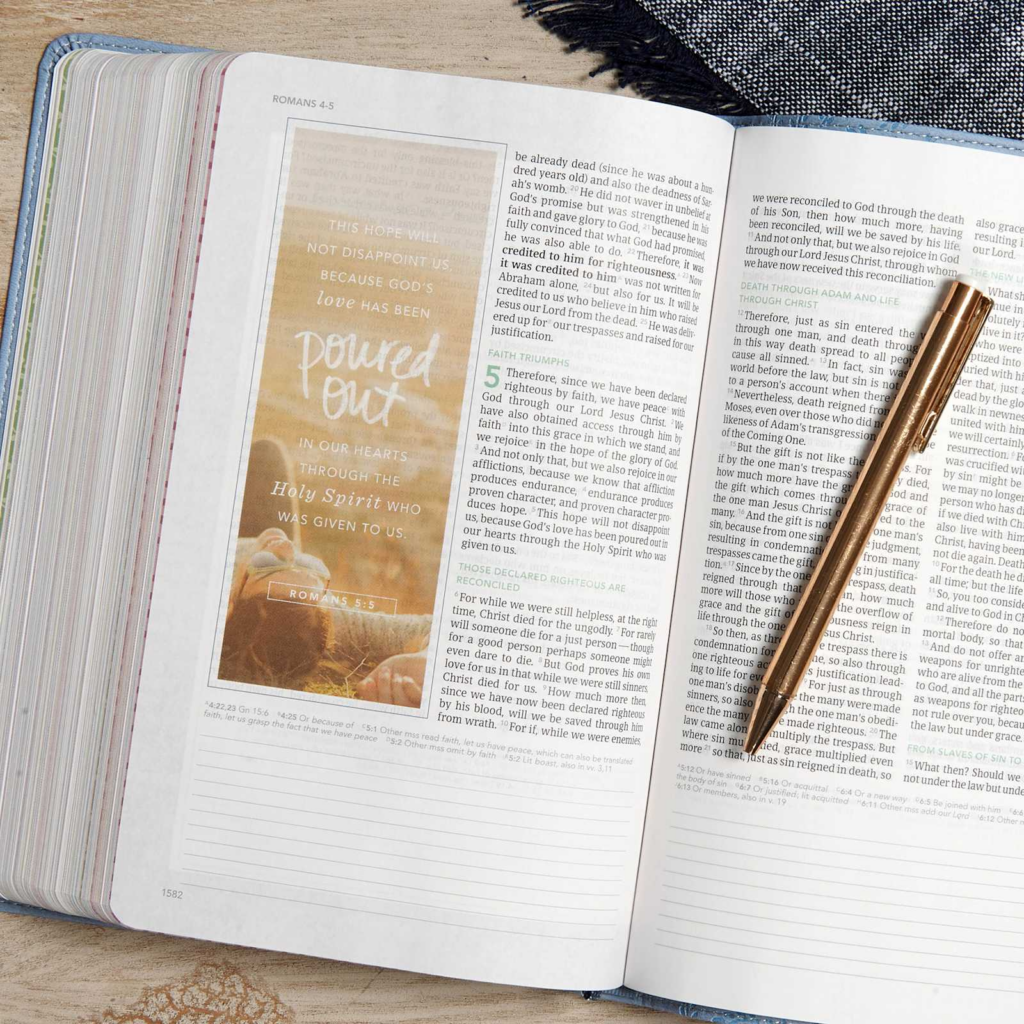 ROMANS 4-5
THIS HOPE WILL
NOT DISAPPOINT US,
BECAUSE GOD'S
love HAS BEEN
poured
out
IN OUR HEARTS
THROUGH THE
Holy Spirit WHO
WAS GIVEN TO US.
ROMANS 5:5
be already dead (since he was about a hun-
dred years old) and also the deadness of Sar-
ah's womb. 20 He did not waver in unbelief at
God's promise but was strengthened in his
faith and gave glory to God, 21 because he was
fully convinced that what God had promised,
he was also able to do. 22 Therefore, it was
credited to him for righteousness. 23 Now
it was credited to him was not written for
Abraham alone, 24 but also for us. It will be
credited to us who believe in him who raised
Jesus our Lord from the dead. 25 He was deliv-
ered up for our trespasses and raised for our
justification.
FAITH TRIUMPHS
5 Therefore, since we have been declared
righteous by faith, we have peace with
God through our Lord Jesus Christ. 2 We
have also obtained access through him by
faith into this grace in which we stand, and
we rejoice in the hope of the glory of God.
3 And not only that, but we also rejoice in our
afflictions, because we know that affliction
produces endurance, 4 endurance produces
proven character, and proven character pro-
duces hope. 5 This hope will not disappoint
us, because God's love has been poured out in
our hearts through the Holy Spirit who was
given to us.
THOSE DECLARED RIGHTEOUS ARE
RECONCILED
6 For while we were still helpless, at the right
time, Christ died for the ungodly. 7 For rarely
will someone die for a just person — though
for a good person perhaps someone might
even dare to die. 8 But God proves his own
love for us in that while we were still sinners,
Christ died for us. 9 How much more then,
since we have now been declared righteous
by his blood, will we be saved through him
from wrath. 10 For if, while we were enemies,
4:22,23 Gn 15:6 4:25 Or because of 5:1 Other mss read faith, let us have peace, which can also be translated
faith, let us grasp the fact that we have peace 5:2 Other mss omit by faith 5:2 Lit boast, also in vv. 3,11
1582
we were reconciled to God through the death
of his Son, then how much more, having
been reconciled, will we be saved by his life.
11 And not only that, but we also rejoice in God
through our Lord Jesus Christ, through whom
we have now received this reconciliation.
DEATH THROUGH ADAM AND LIFE
THROUGH CHRIST
12 Therefore, just as sin entered the
through one man, and death throug
in this way death spread to all peop
cause all sinned. 13 In fact, sin was
world before the law, but sin is not
to a person's account when there
14 Nevertheless, death reigned from
Moses, even over those who did no
likeness of Adam's transgression
of the Coming One.
15 But the gift is not like the
if by the one man's trespass died,
how much more have the gr of God and
the gift which comes throu grace of
the one man Jesus Christ ed to the
many. 16 And the gift is not one man's
sin, because from one sin judgment,
resulting in condemnat from many
trespasses came the gift, in justifica-
tion. 17 Since by the one trespass, death
reigned through that in, how much
more will those who the overflow of
grace and the gift of ousness reign in
life through the one sus Christ.
18 So then, as thr trespass there is
condemnation fo ne, so also through
one righteous ac s justification lead-
ing to life for ev For just as through
one man's disob many were made
sinners, so also the one man's obedi-
ence the many made righteous. 20 The
law came along multiply the trespass. But
where sin mul , grace multiplied even
more 21 so that, just as sin reigned in death, so
5:12 Or have sinned 5:16 Or acquittal 6:4 Or a new way 6:5 Be joined with him
the body of sin 6:7 Or justified; lit acquitted 6:11 Other mss add our Lord 6:12 Other m
6:13 Or members, also in v. 19
also grace
resulting i
our Lord.
THE NEW LI
What sh
live in it?
who were
ptized into
uried with hi
der that, just
dead by the glo
walk in newnes
we will certainly
resurrection. 6 Fo
was crucified with
by sin might be
we may no longer
person who has di
if we died with Chri
also live with him
Christ, having been
not die again. Death
10 For the death he di
all time; but the life
11 So, you too conside
and alive to God in C
12 Therefore do no
mortal body, so that
13 And do not offer an
weapons for unrighte
who are alive from the
to God, and all the part
as weapons for righteo
not rule over you, becau
the law but under grace.
FROM SLAVES OF SIN TO
15 What then? Should we
not under the law but unde